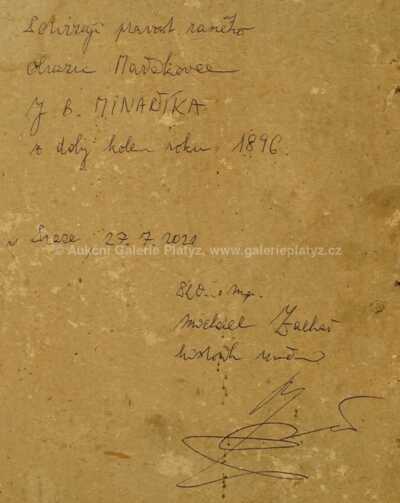 Potvrzuji pravost raného
obrazu Mařákovce
J. B. MINAŘÍKA
z doby kolem roku 1896.
v Praze 27. 7. 2021
© Aukční Galerie Platýz, www.galerieplatyz.cz
Michael Zachař
historik umění